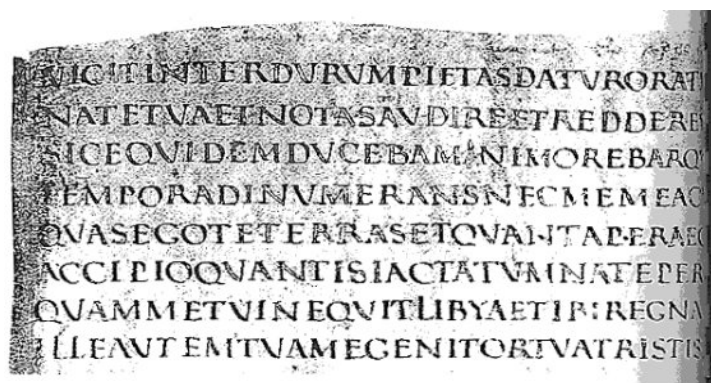 VICITINTERDVRVMPIETASDATVRORAT
NATETVAETNOTASAVDIREETREDDERE
SICEQVIDEMDVCEBAMANIMOREBARQV
TEMPORADINVMERANSNECMEMEAC
QVASEGOTETERRASETQVANTAPERAEQ
ACCIPIOQVANTISIACTATVMNATEPER
QVAMMETVINEQVITLIBYAETIBIREGNA
ILLEAVTEMTVAMEGENITORTVATRISTIS